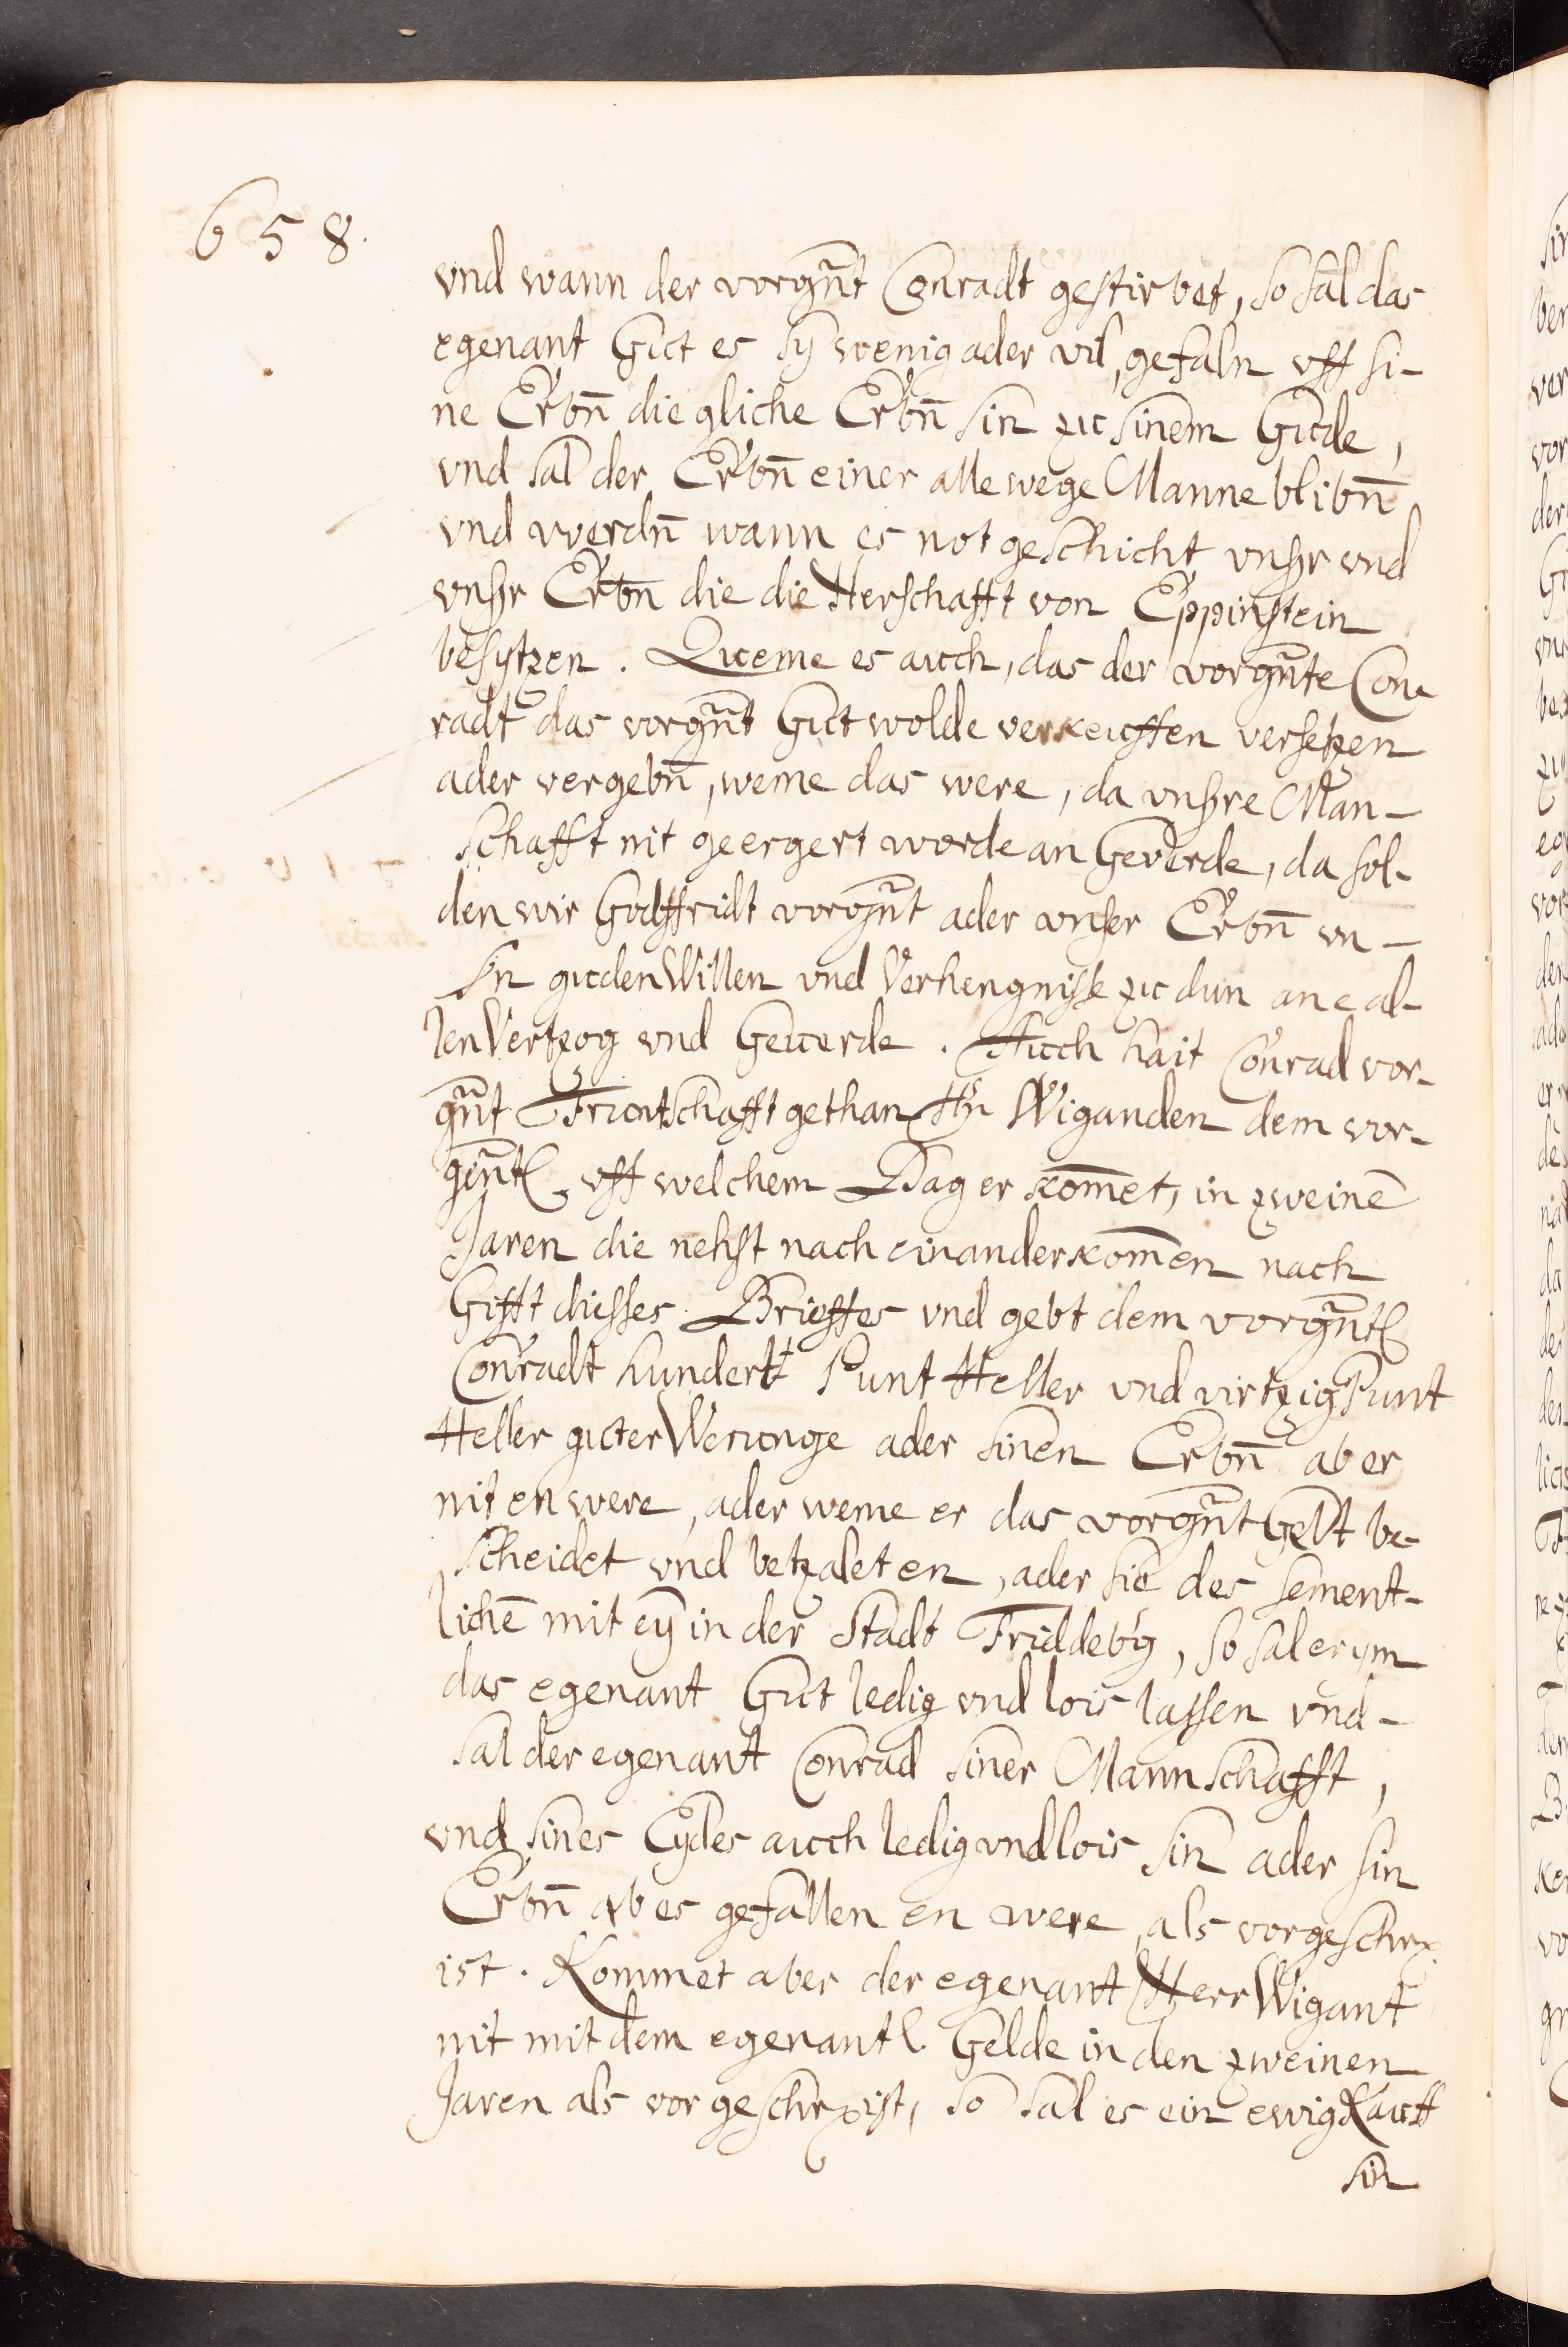 658.
vnd wann der vorgn̄t Conradt gestirbet, so sal das
egenant Gut es sÿ wenig ader vil, gefaln vff si-
ne Erbn̄ die gliche Erbn̄ sin zu sinem Gude,
vnd sal der Erbn̄ einer alle wege Manne blibn̄
vnd werdn̄ wann es not geschicht vnßr vnd
vnßr Erbn̄ die die Herschafft von Eppinstein
besytzen. Queme es auch, das der vorgn̄te Con-
radt das vorgn̄t Gut wolde verkeuffen versetzen
ader vergebn̄, weme das were, da vnßre Man-
schafft nit geergert worde an Geverde, da sol-
den wir Godffridt vorgn̄t ader vnser Erbn̄ vn-
ßn guden Willen vnd Verhengniße zu dun ane al-
len Vertzog vnd Geuerde. Auch hait Conrad vor-
gn̄t Fruntschafft gethan Hn̄ Wiganden dem vor-
gen̄t vff welchem Dag er kom̄et, in zweinē
Jaren die nehst nach einander kom̄en nach
Gifft diesses Brieffes vnd gebt dem vorgn̄t
Conradt hundertt Punt Heller vnd virtzig Punt
Heller guter Werunge ader sinen Erbn̄ ab er
nit en were, ader weme er das vorgn̄t Gelt be-
scheidet vnd betzalet en, ader sie des sement-
lichē mit eÿ in der Stadt Friddebg, so sal er ym
das egenant Gut ledig vnd lois lassen vnd-
sal der egenant Conrad siner Mannschafft,
vnd sines Eydes auch ledig vnd lois sin ader sin
Erbn̄ ab es gefallen en were, als vorgeschr
ist. Kommet aber der egenant Herr Wigant
nit mit dem egenant. Gelde in den zweinen
Jaren als vorgeschr ist, so sal es ein ewig Kauff
sin